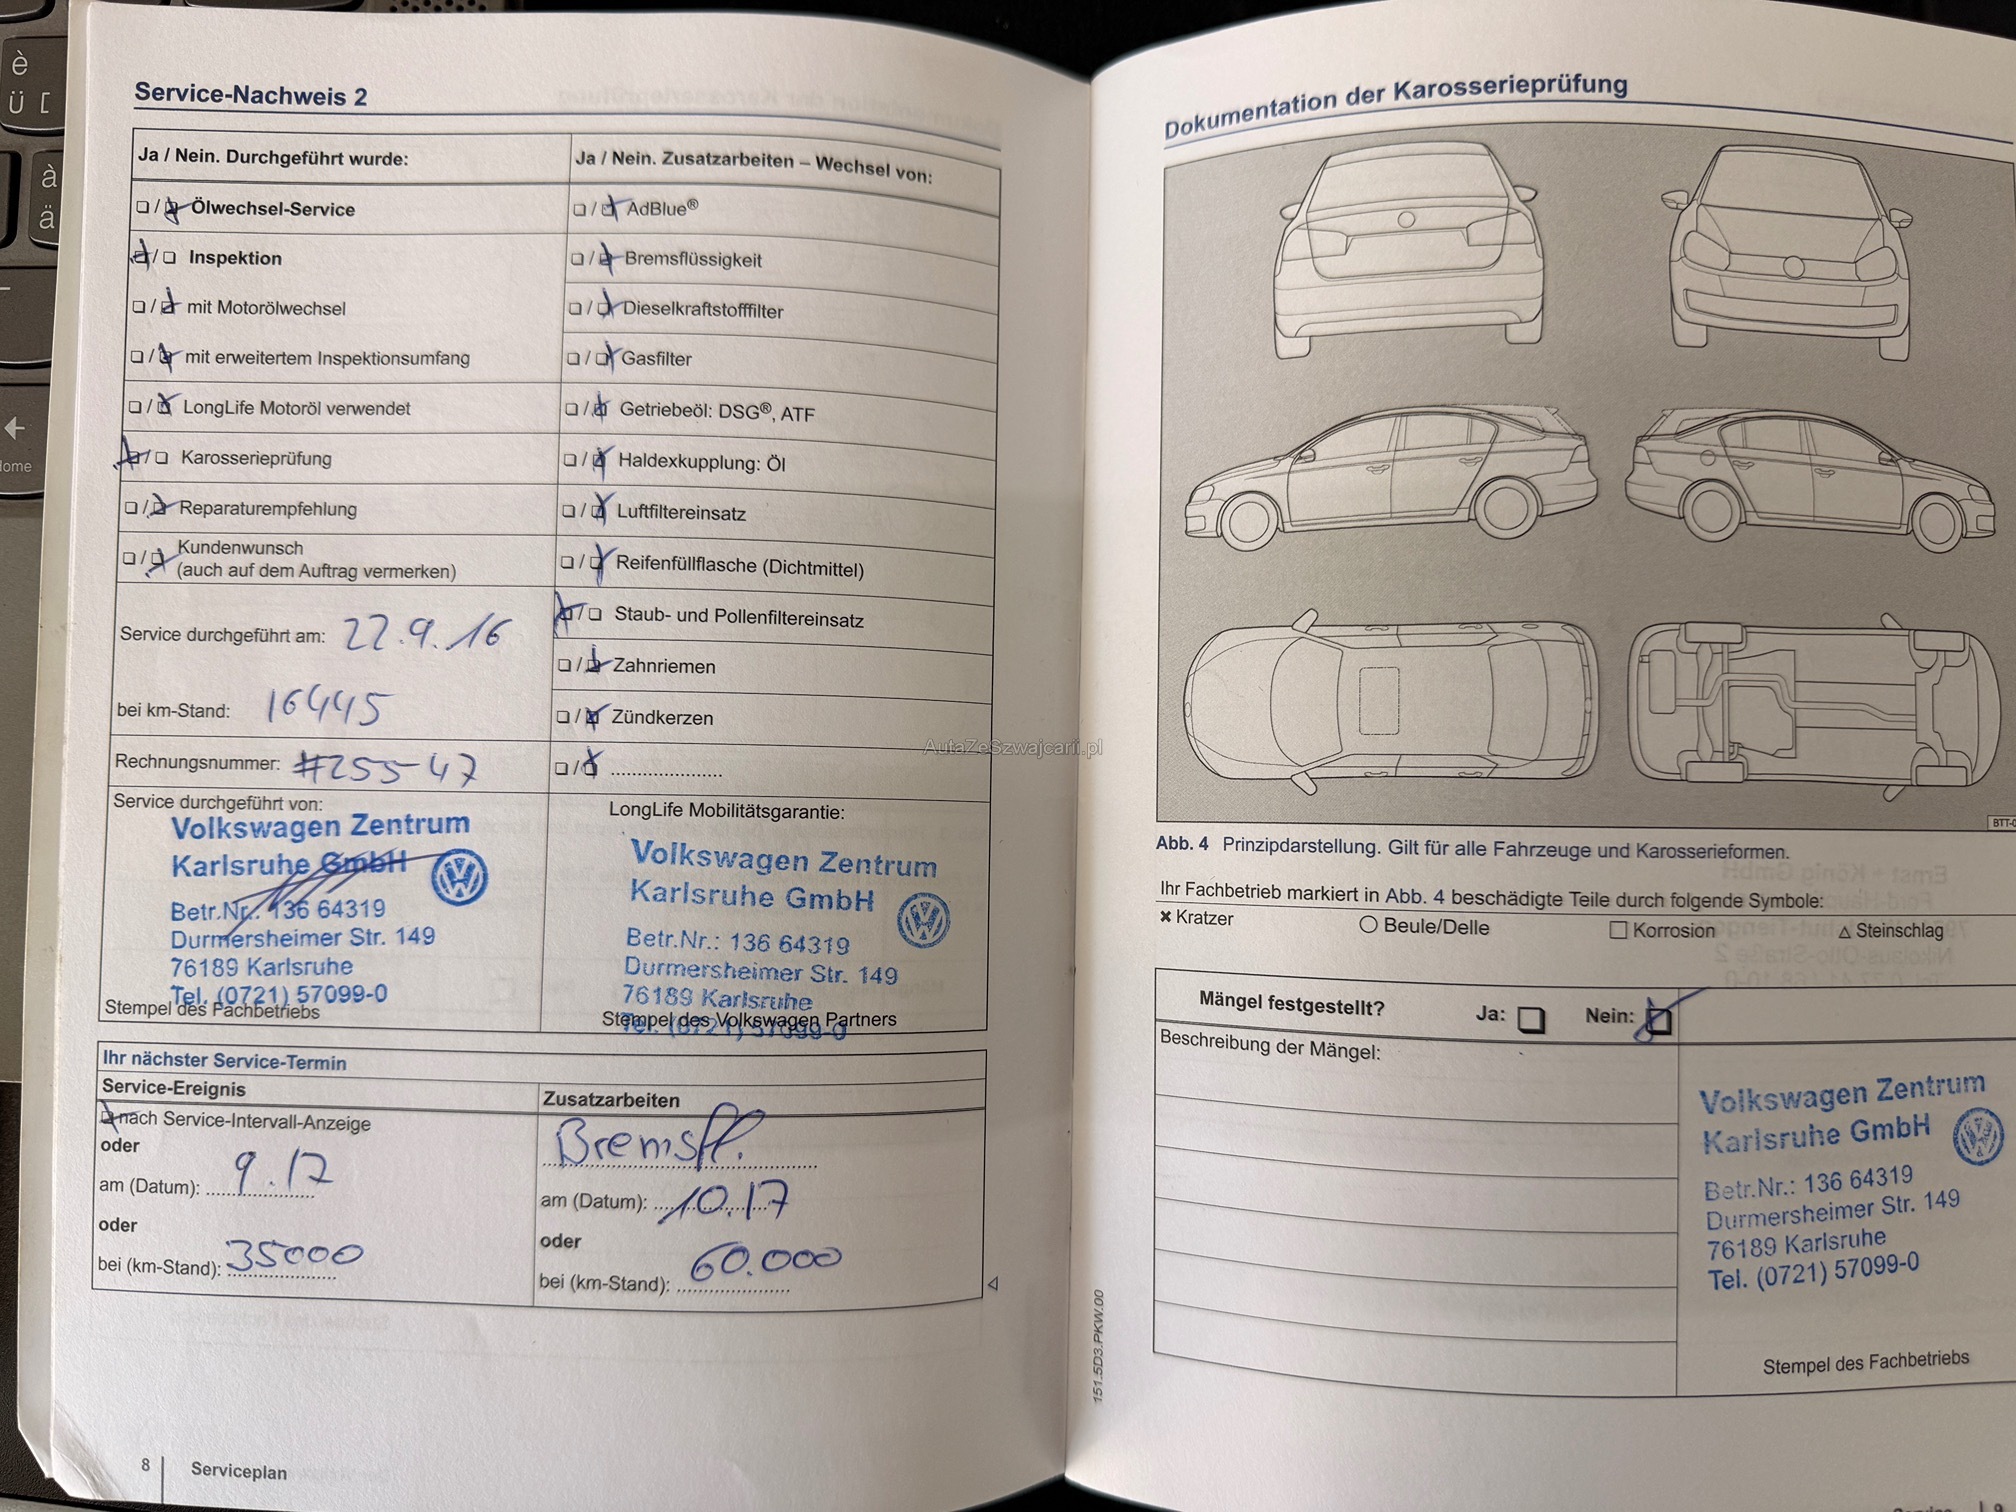 è
Ü [
à
ä
Home
Service-Nachweis 2
Ja / Nein. Durchgeführt wurde:
Ölwechsel-Service
Inspektion
mit Motorölwechsel
mit erweitertem Inspektionsumfang
LongLife Motoröl verwendet
Karosserieprüfung
Reparaturempfehlung
Kundenwunsch
(auch auf dem Auftrag vermerken)
Service durchgeführt am: 22.9.16
bei km-Stand: 16445
Rechnungsnummer: #255-47
Service durchgeführt von:
Volkswagen Zentrum
Karlsruhe GmbH
Betr.Nr.: 136 64319
Durmersheimer Str. 149
76189 Karlsruhe
Tel. (0721) 57099-0
Stempel des Fachbetriebs
Ja / Nein. Zusatzarbeiten – Wechsel von:
AdBlue®
Bremsflüssigkeit
Dieselkraftstofffilter
Gasfilter
Getriebeöl: DSG®, ATF
Haldexkupplung: Öl
Luftfiltereinsatz
Reifenfüllflasche (Dichtmittel)
Staub- und Pollenfiltereinsatz
Zahnriemen
Zündkerzen
LongLife Mobilitätsgarantie:
Volkswagen Zentrum
Karlsruhe GmbH
Betr.Nr.: 136 64319
Durmersheimer Str. 149
76189 Karlsruhe
Tel. (0721) 57099-0
Stempel des Volkswagen Partners
Ihr nächster Service-Termin
Service-Ereignis
nach Service-Intervall-Anzeige
oder
am (Datum): 9.17
oder
bei (km-Stand): 35000
Zusatzarbeiten
Bremsfl.
am (Datum): 10.17
oder
bei (km-Stand): 60.000
8 Serviceplan
AutaZeSzwajcarii.pl
Dokumentation der Karosserieprüfung
Abb. 4 Prinzipdarstellung. Gilt für alle Fahrzeuge und Karosserieformen.
Ihr Fachbetrieb markiert in Abb. 4 beschädigte Teile durch folgende Symbole:
× Kratzer ○ Beule/Delle □ Korrosion △ Steinschlag
Mängel festgestellt? Ja: Nein:
Beschreibung der Mängel:
Volkswagen Zentrum
Karlsruhe GmbH
Betr.Nr.: 136 64319
Durmersheimer Str. 149
76189 Karlsruhe
Tel. (0721) 57099-0
Stempel des Fachbetriebs
151.5D3.PKW.00